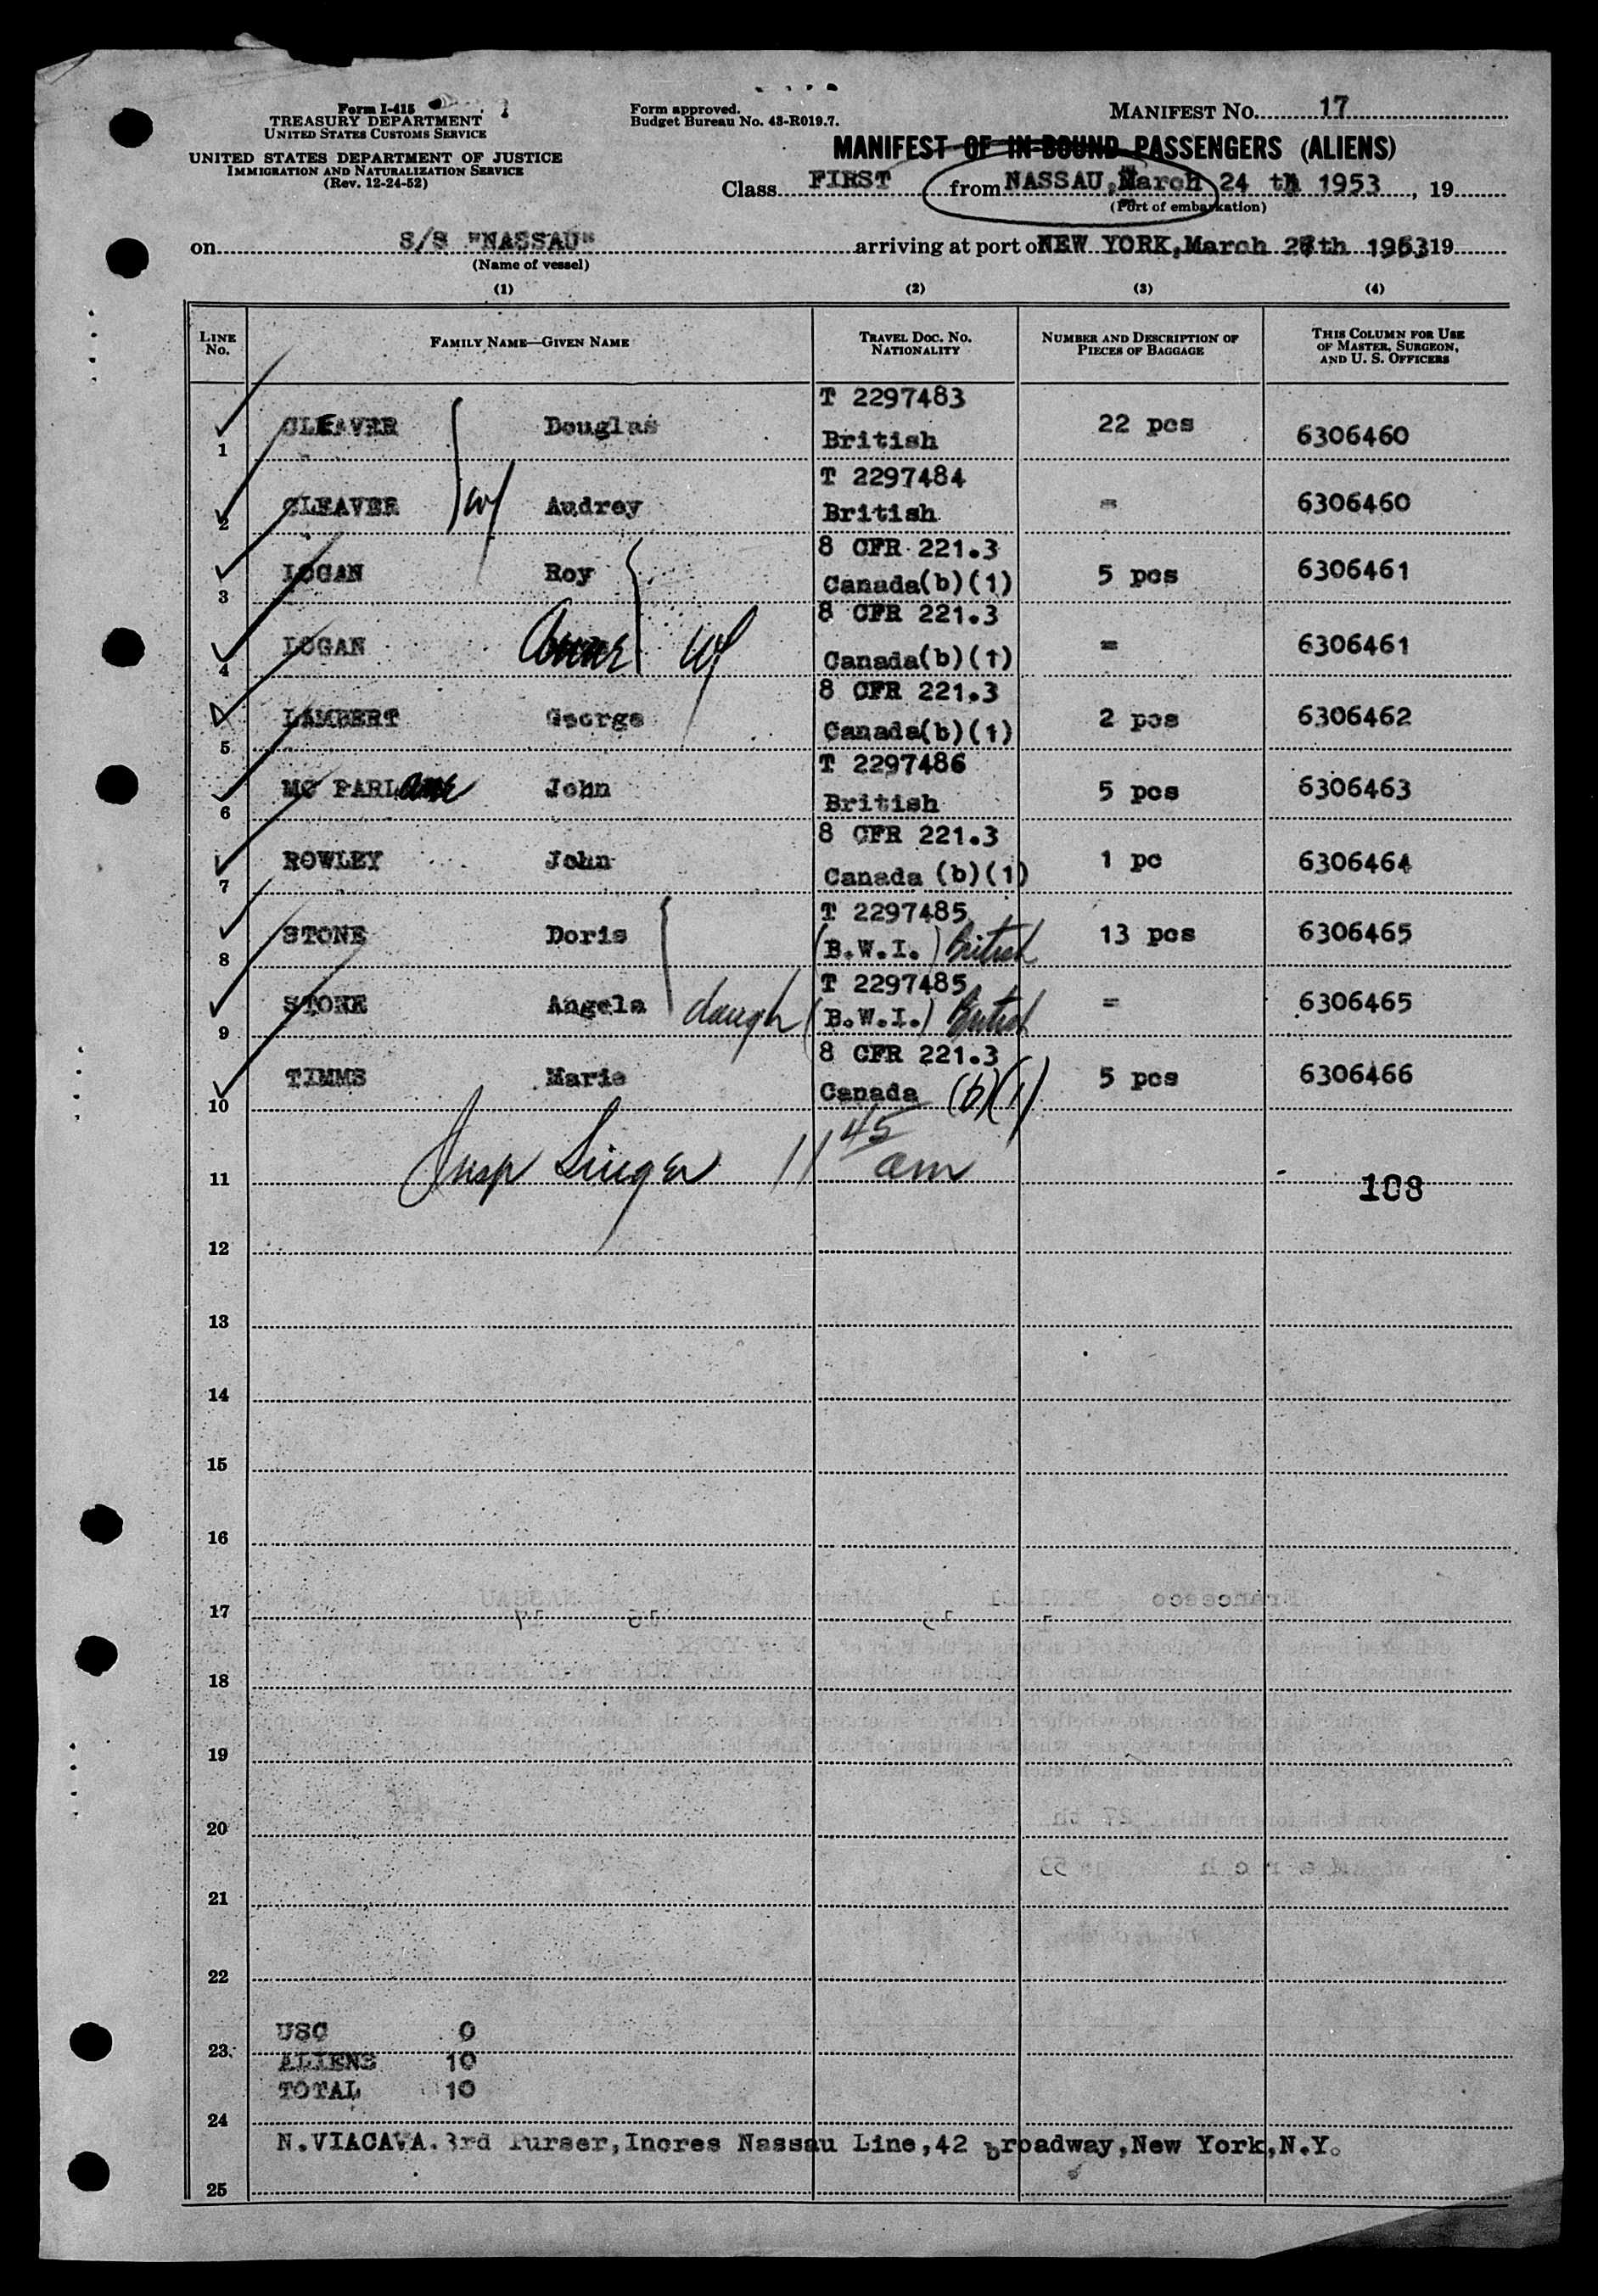 Form I-415
TREASURY DEPARTMENT
UNITED STATES CUSTOMS SERVICE
UNITED STATES DEPARTMENT OF JUSTICE
IMMIGRATION AND NATURALIZATION SERVICE
(Rev. 12-24-52)
Form approved.
Budget Bureau No. 43-R019.7.
MANIFEST NO. 17
MANIFEST OF IN-BOUND PASSENGERS (ALIENS)
Class FIRST from NASSAU, March 24 th 1953, 19
(Port of embarkation)
on S/S "NASSAU" arriving at port of NEW YORK, March 27th 1953 19
(Name of vessel)
(1) (2) (3) (4)
LINE No. FAMILY NAME—GIVEN NAME TRAVEL DOC. NO. NATIONALITY NUMBER AND DESCRIPTION OF PIECES OF BAGGAGE THIS COLUMN FOR USE OF MASTER, SURGEON, AND U. S. OFFICERS
1 CLEAVER Douglas T 2297483 British 22 pcs 6306460
2 CLEAVER w/ Audrey T 2297484 British = 6306460
3 LOGAN Roy 8 CFR 221.3 Canada(b)(1) 5 pcs 6306461
4 LOGAN wf 8 CFR 221.3 Canada(b)(1) = 6306461
5 LAMBERT George 8 CFR 221.3 Canada(b)(1) 2 pcs 6306462
6 MC FARLane John T 2297486 British 5 pcs 6306463
7 ROWLEY John 8 CFR 221.3 Canada (b)(1) 1 pc 6306464
8 STONE Doris T 2297485 (B.W.I.) British 13 pcs 6306465
9 STONE Angela daugh T 2297485 (B.W.I.) British = 6306465
10 TIMMS Marie 8 CFR 221.3 Canada (b)(1) 5 pcs 6306466
11 Insp Singer 11 45 am 108
12
13
14
15
16
17
18
19
20
21
22
USC 0
23 ALIENS 10
TOTAL 10
24
N.VIACAVA.3rd Purser,Incres Nassau Line,42 Broadway,New York,N.Y.
25